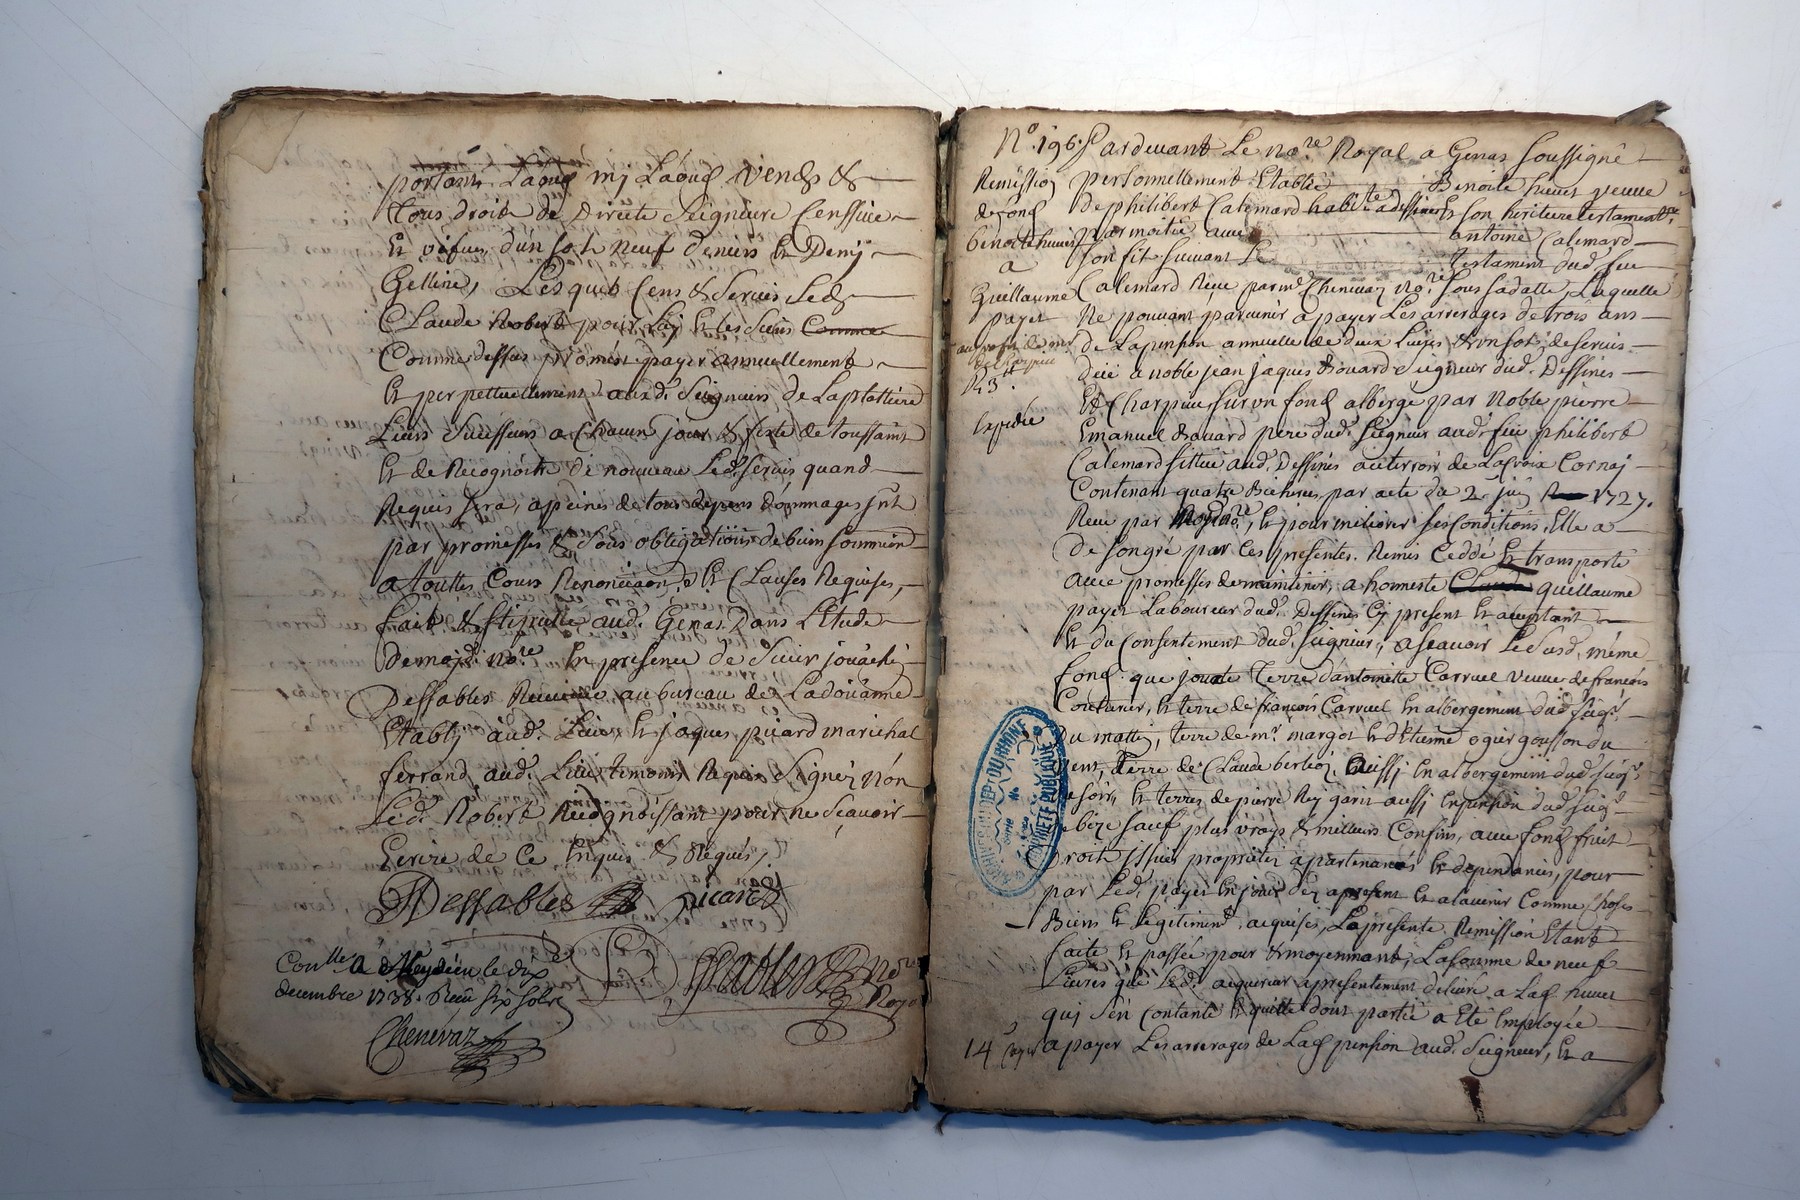 portant Laouds my Laouds vends &
tous droits de Directe Seigneurie Censsive
Et d'un sol neuf deniers Et Demy
Gelline, Lesquels Cens & Servis Led.
Claude Robert pour Luy Et les Siens Comme
Comme dessus Promet payer annuellement
Et perpettuellement aud. Seigneurs de Laplattiere
Lieurs Suisseurs a Chacun jour & feste de toussaint
Et de Recognoitre de nouveau Led. Servis quand
Requis Sera, apeines de tous depens dommages Int
par promesses & Sous obligations de bien Soumission
atouttes Cours Renonciaon & Et Clauses Requises,
fait & Stipullé aud. Genas Dans L'Etude
Demoyd. no.re En presence de Sieur jouachi
Dessables Receveur au bureau de Ladoüanne
Etably aud. Lieu Et jaques picard marichal
ferrand aud. Lieu temoins Requis Signez non
Led. Robert Recognoissant pour ne Sçavoir
Ecrire de Ce Enquis & Requis,
Dessables picard
Con.lle a Meydieu le dix
decembre 1738. Reçu six sols
no.re
Royal
Chenevaz
N.o 196. Pardevant Le no.re Royal a Genas Soussigné
Remission
de fond
benoite huvet
a
Guillaume
payet
R 3#.
Expedié
personnellement Etablie Benoite huvet veuve
de philibert Calemard habitte a dessines Et Son heritiere testament.re
par moitié avec antoine Calemard
Son fils Suivant Le testament dud. feu
Calemard Reçu par m.e Chenevaz No.re Sous Sa datte, Laquelle
Ne pouvant parvenir a payer Les arrerages de trois ans
de Lapension annuelle de deux Livres & un sol de Servis
deüe a noble jean jaques Bouard Seigneur dud. Dessines
Et Charpieu Sur un fond albergé par Noble pierre
Emanuel Bouard pere dud. Seigneur aud. feu philibert
Calemard Sittué aud. Dessines au terroir de Lacroix Cornaj
Contenant quatre Bicherées par acte du 2. juin 1727.
Reçu par no.re, Et pour meliorer Ses Conditions, Elle a
de Son gré par Ces presentes. Remis Ceddé Et transporté
avec promesses de maintenir, a honneste Guillaume
payet Laboureur dud. Dessines Cy present Et acceptant
Et du Consentement dud. Seigneur, a Sçavoir Le Susd. même
fond que jouxte Terre d'antoinette Carruel veuve de francois
Couturier, Et terre de francois Carruel En albergement dud. Seig.r
Du matin, terre de m.r margot Et d'Etienne ogier gousson du
vent, Terre de Claude berlioz, aussi En albergement dud. Seig.r
de Soir, Et terres de pierre Rey garin aussi En pension dud. Seig.r
de bize Sauf plus vrays & meilleurs Confins, avec fond fruit
Droits issues proprietez apartenances Et dependances, pour
par Led. payet En jouir dez apresent Et alavenir Comme Choses
Biens Et Legitimem.t acquises, Lapresente Remission Etant
faite Et passée pour & moyennant, Lasomme de neuf
Livres que Led. acquereur apresentement delivré a Lad. huvet
qui S'en Contante Et quitte dont partie a Eté Employée
14 apayer Les arrerages de Lad. pension aud. Seigneur, Et a
ARCHIVES DU DEPT DU RHONE
PROPRIETE PUBLIQUE